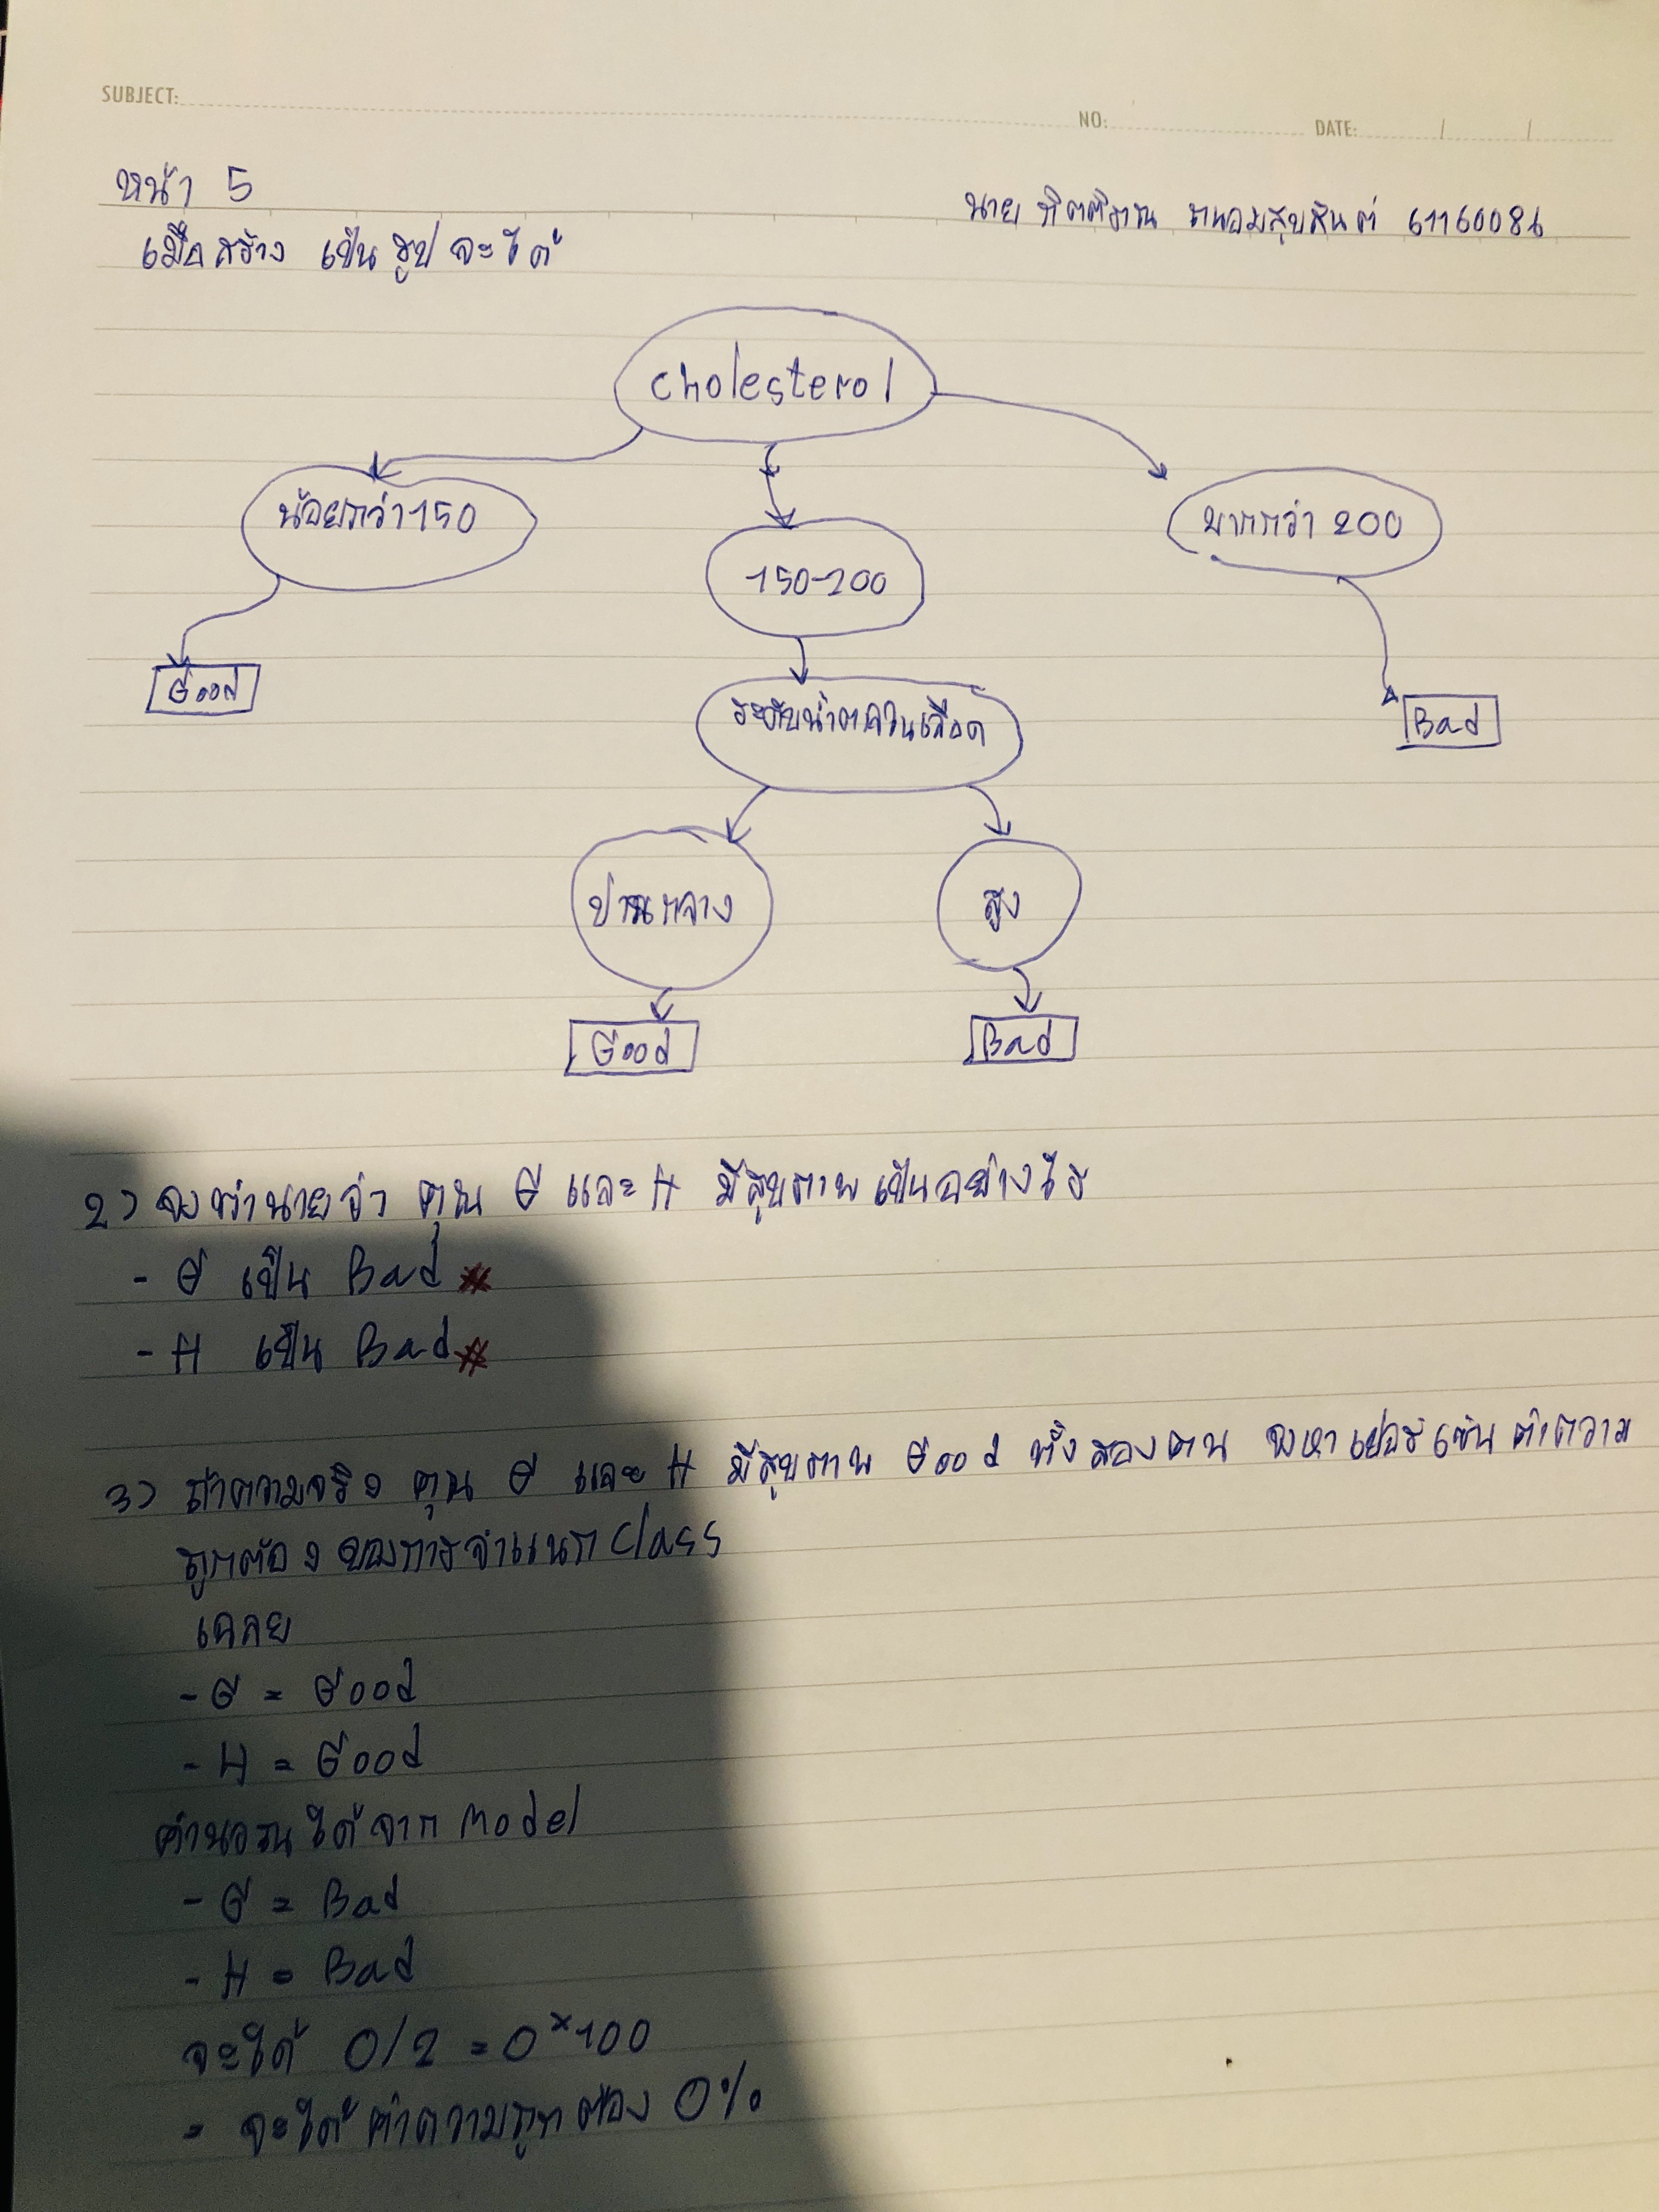 SUBJECT:
NO:
DATE: / /
หน้า 5
นาย กิตติธรณ ถนอมสุขสันต์ 61160086
เมื่อสร้าง เป็นรูป จะได้
Cholesterol
น้อยกว่า 150
150-200
มากกว่า 200
Good
ระดับน้ำตาลในเลือด
Bad
ปานกลาง
สูง
Good
Bad
2) จงทำนายว่า คุณ G และ H มีสุขภาพเป็นอย่างไร
- G เป็น Bad #
- H เป็น Bad #
3) ถ้าความจริง คุณ G และ H มีสุขภาพ Good ทั้งสองคน จงหาเปอร์เซ็นค่าความ
ถูกต้อง ของการจำแนก Class
เฉลย
- G = Good
- H = Good
คำนวณได้จาก Model
- G = Bad
- H = Bad
จะได้ 0/2 = 0 × 100
= จะได้ค่าความถูกต้อง 0%